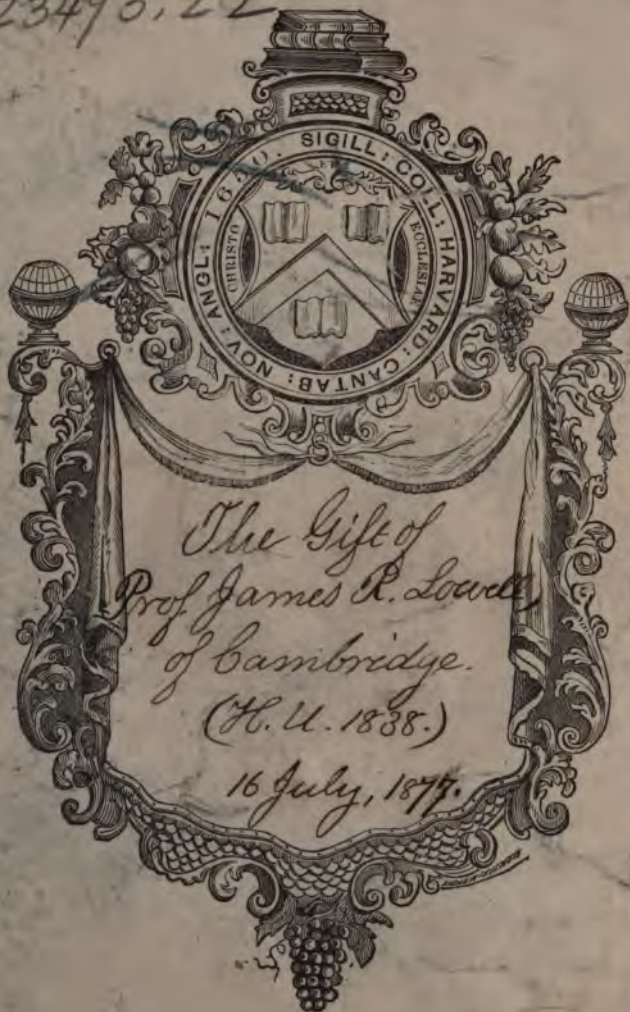 23493.22
SIGILL: COLL: HARVARD: CANTAB: NOV: ANGL: 1650.
CHRISTO
ECCLESIAE
The Gift of
Prof. James R. Lowell,
of Cambridge.
(H. U. 1838.)
16 July, 1877.